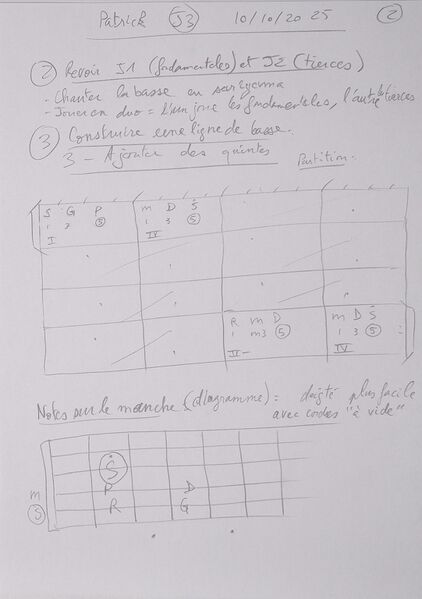 Patrick J3 10/10/2025 2
2 Revoir J1 (fondamentales) et J2 (tierces)
- Chanter la basse en sargama
- Jouer en duo = L'un joue les fondamentales, l'autre les tierces
3 Construire une ligne de basse.
3 - Ajouter des quintes Partition.
S G P m D Ṡ
1 3 5 1 3 5
I IV
R m D m D Ṡ
1 m3 5 1 3 5
II- IV
Notes sur le manche (diagramme) = doigté plus facile
avec cordes "à vide"
Ṡ
P D
m
S R G